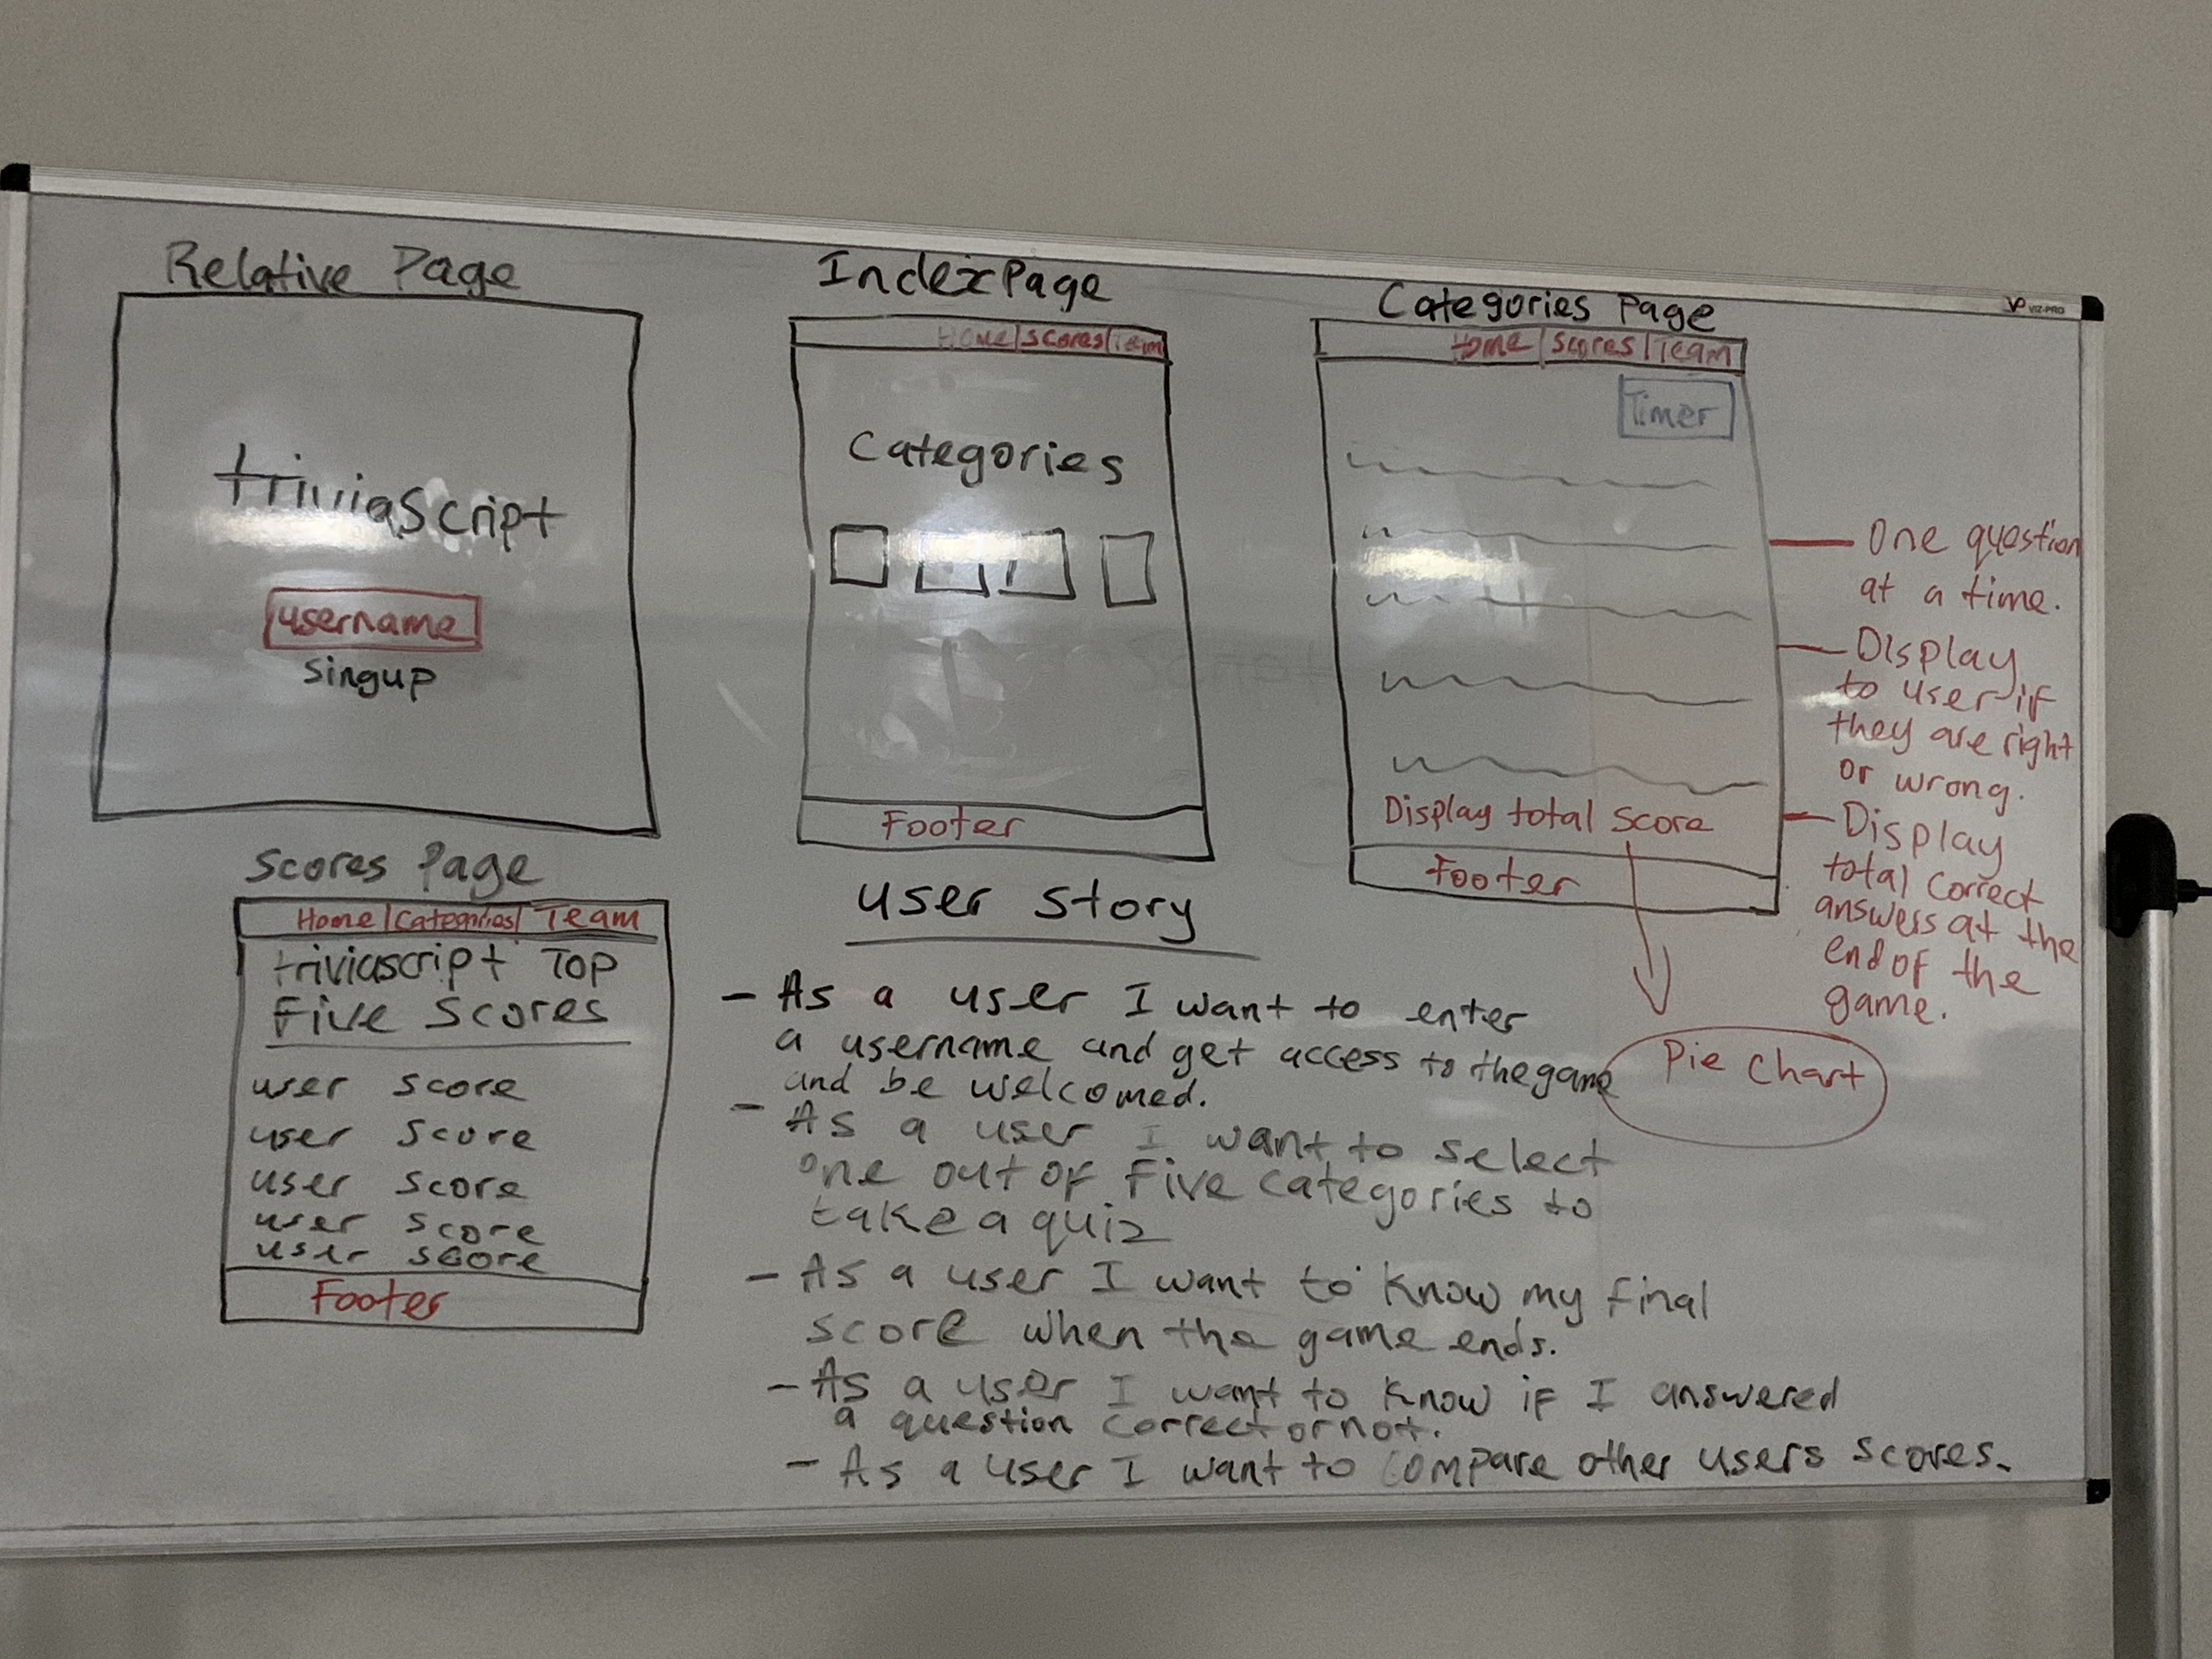 Relative Page
triviaScript
username
singup
Index Page
Home|Scores|Team
Categories
Footer
Categories Page
Home|Scores|Team
Timer
Display total Score
Footer
Pie Chart
One question
at a time.
Display
to user if
they are right
or wrong.
Display
total correct
answers at the
end of the
game.
VIZ-PRO
Scores Page
Home|Categories|Team
triviascript Top
Five Scores
user score
user score
user score
user score
user score
Footer
user story
- As a user I want to enter
a username and get access to the game
and be welcomed.
- As a user I want to select
one out of Five categories to
take a quiz
- As a user I want to know my final
score when the game ends.
- As a user I want to know if I answered
a question correct or not.
- As a user I want to compare other users scores.